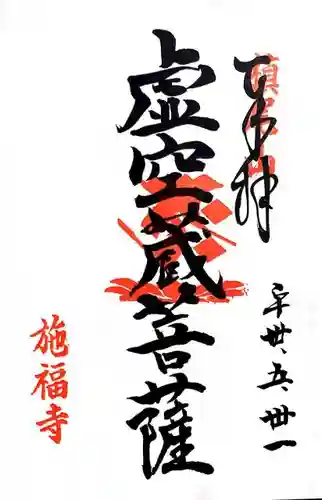 奉拝
平卅、五、卅一
虚空蔵菩薩
施福寺